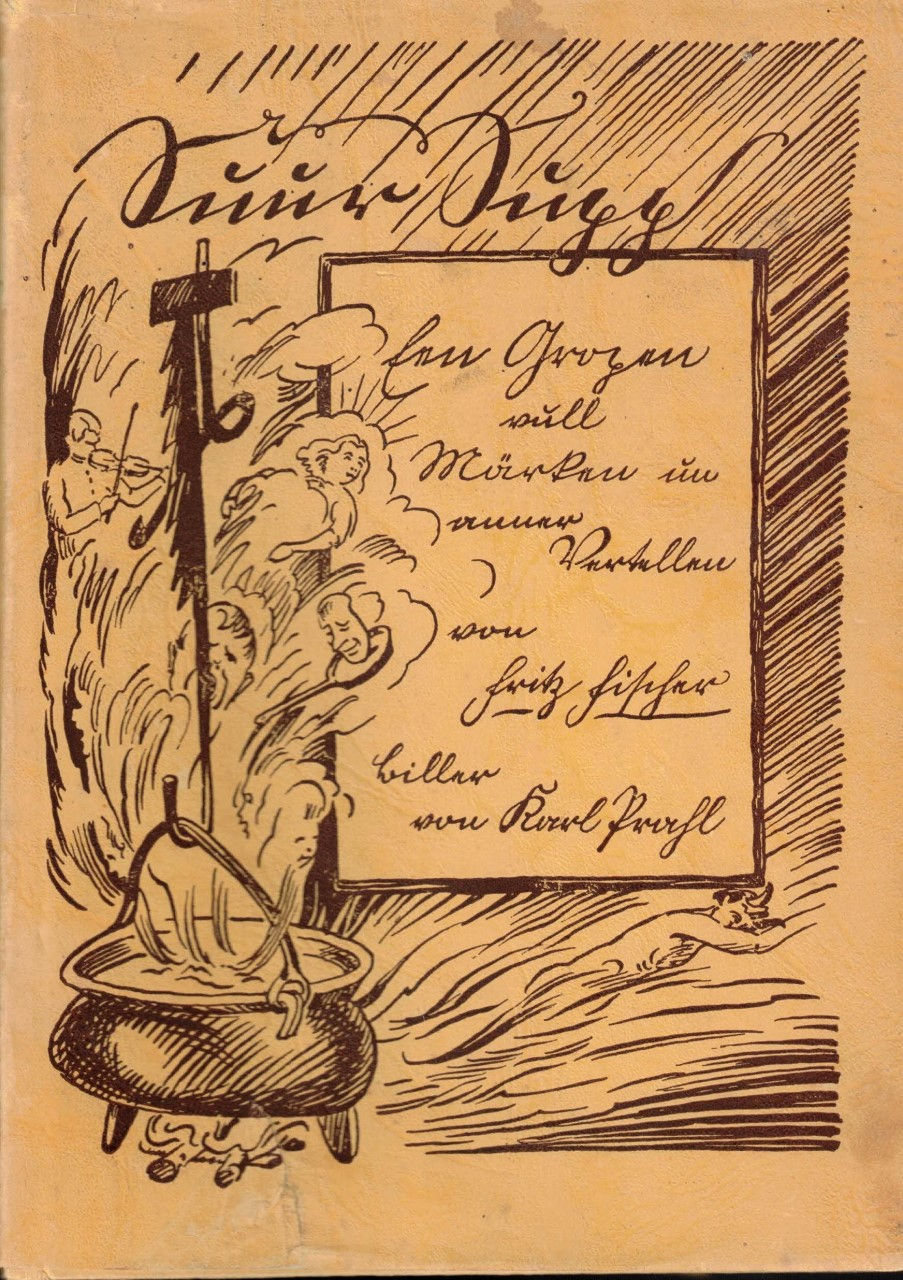 Suur Supp
Een Gropen
vull
Märken un
anner
Vertellen
von
Fritz Fischer
Biller
von Karl Prahl